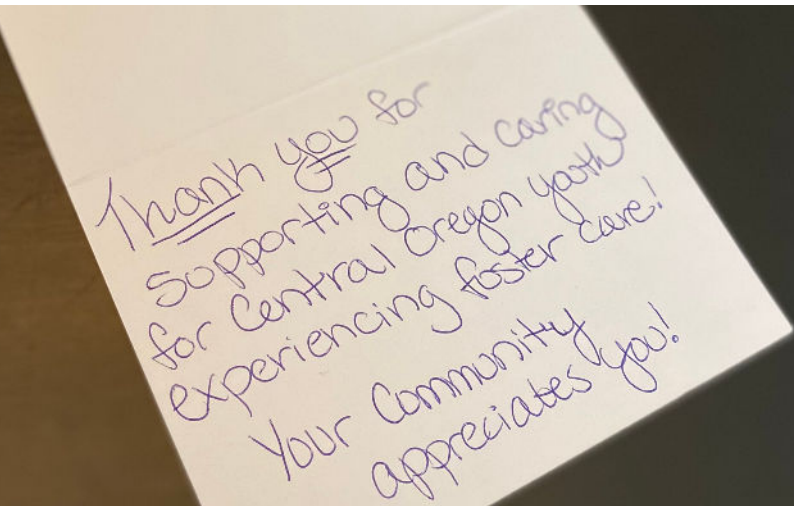 Thank you for
supporting and caring
for Central Oregon youth
experiencing foster care!
Your Community
appreciates you!